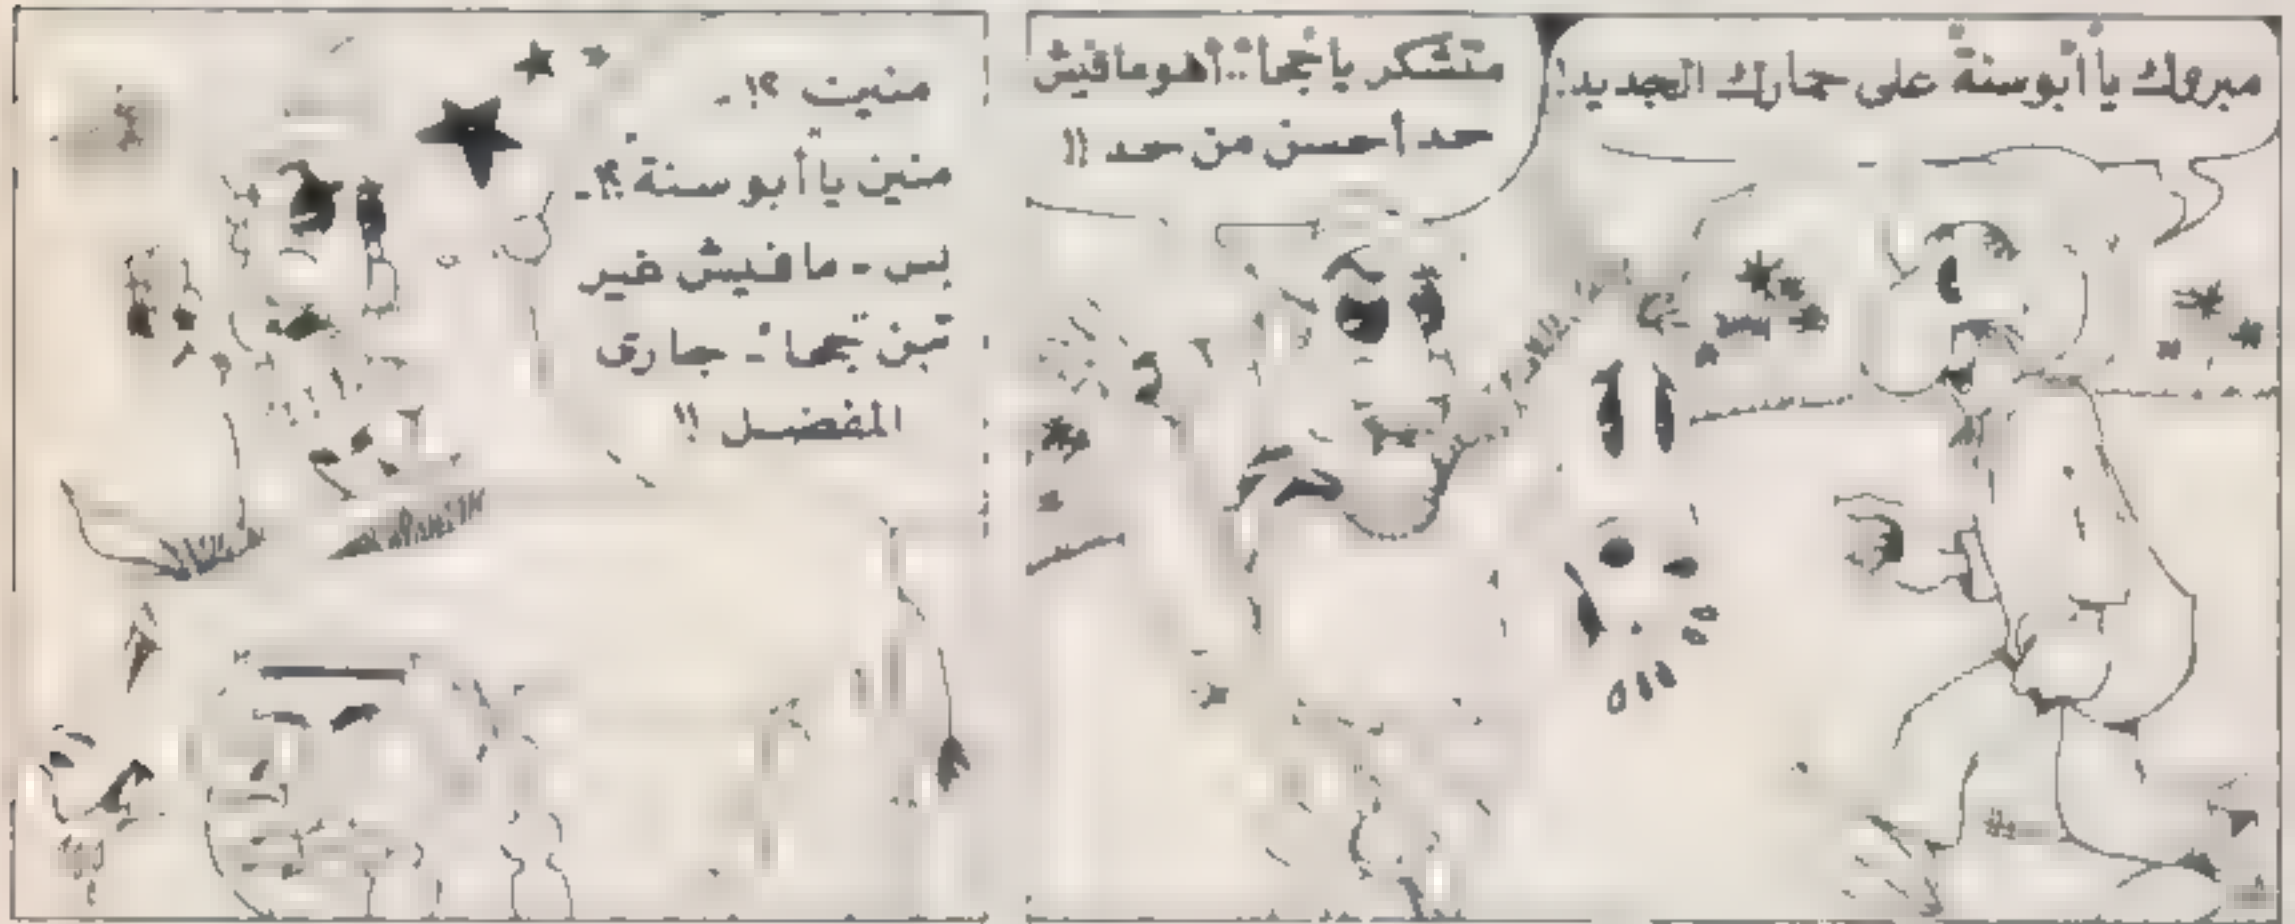 مبروك يا أبو سنة على حمارك الجديد!
متشكر يا جحا.. أهو مافيش
حد أحسن من حد !!
منين ؟! -
منين يا أبو سنة ؟! -
بس - ما فيش غير
تبن جحا - حمارى
المفضل !!